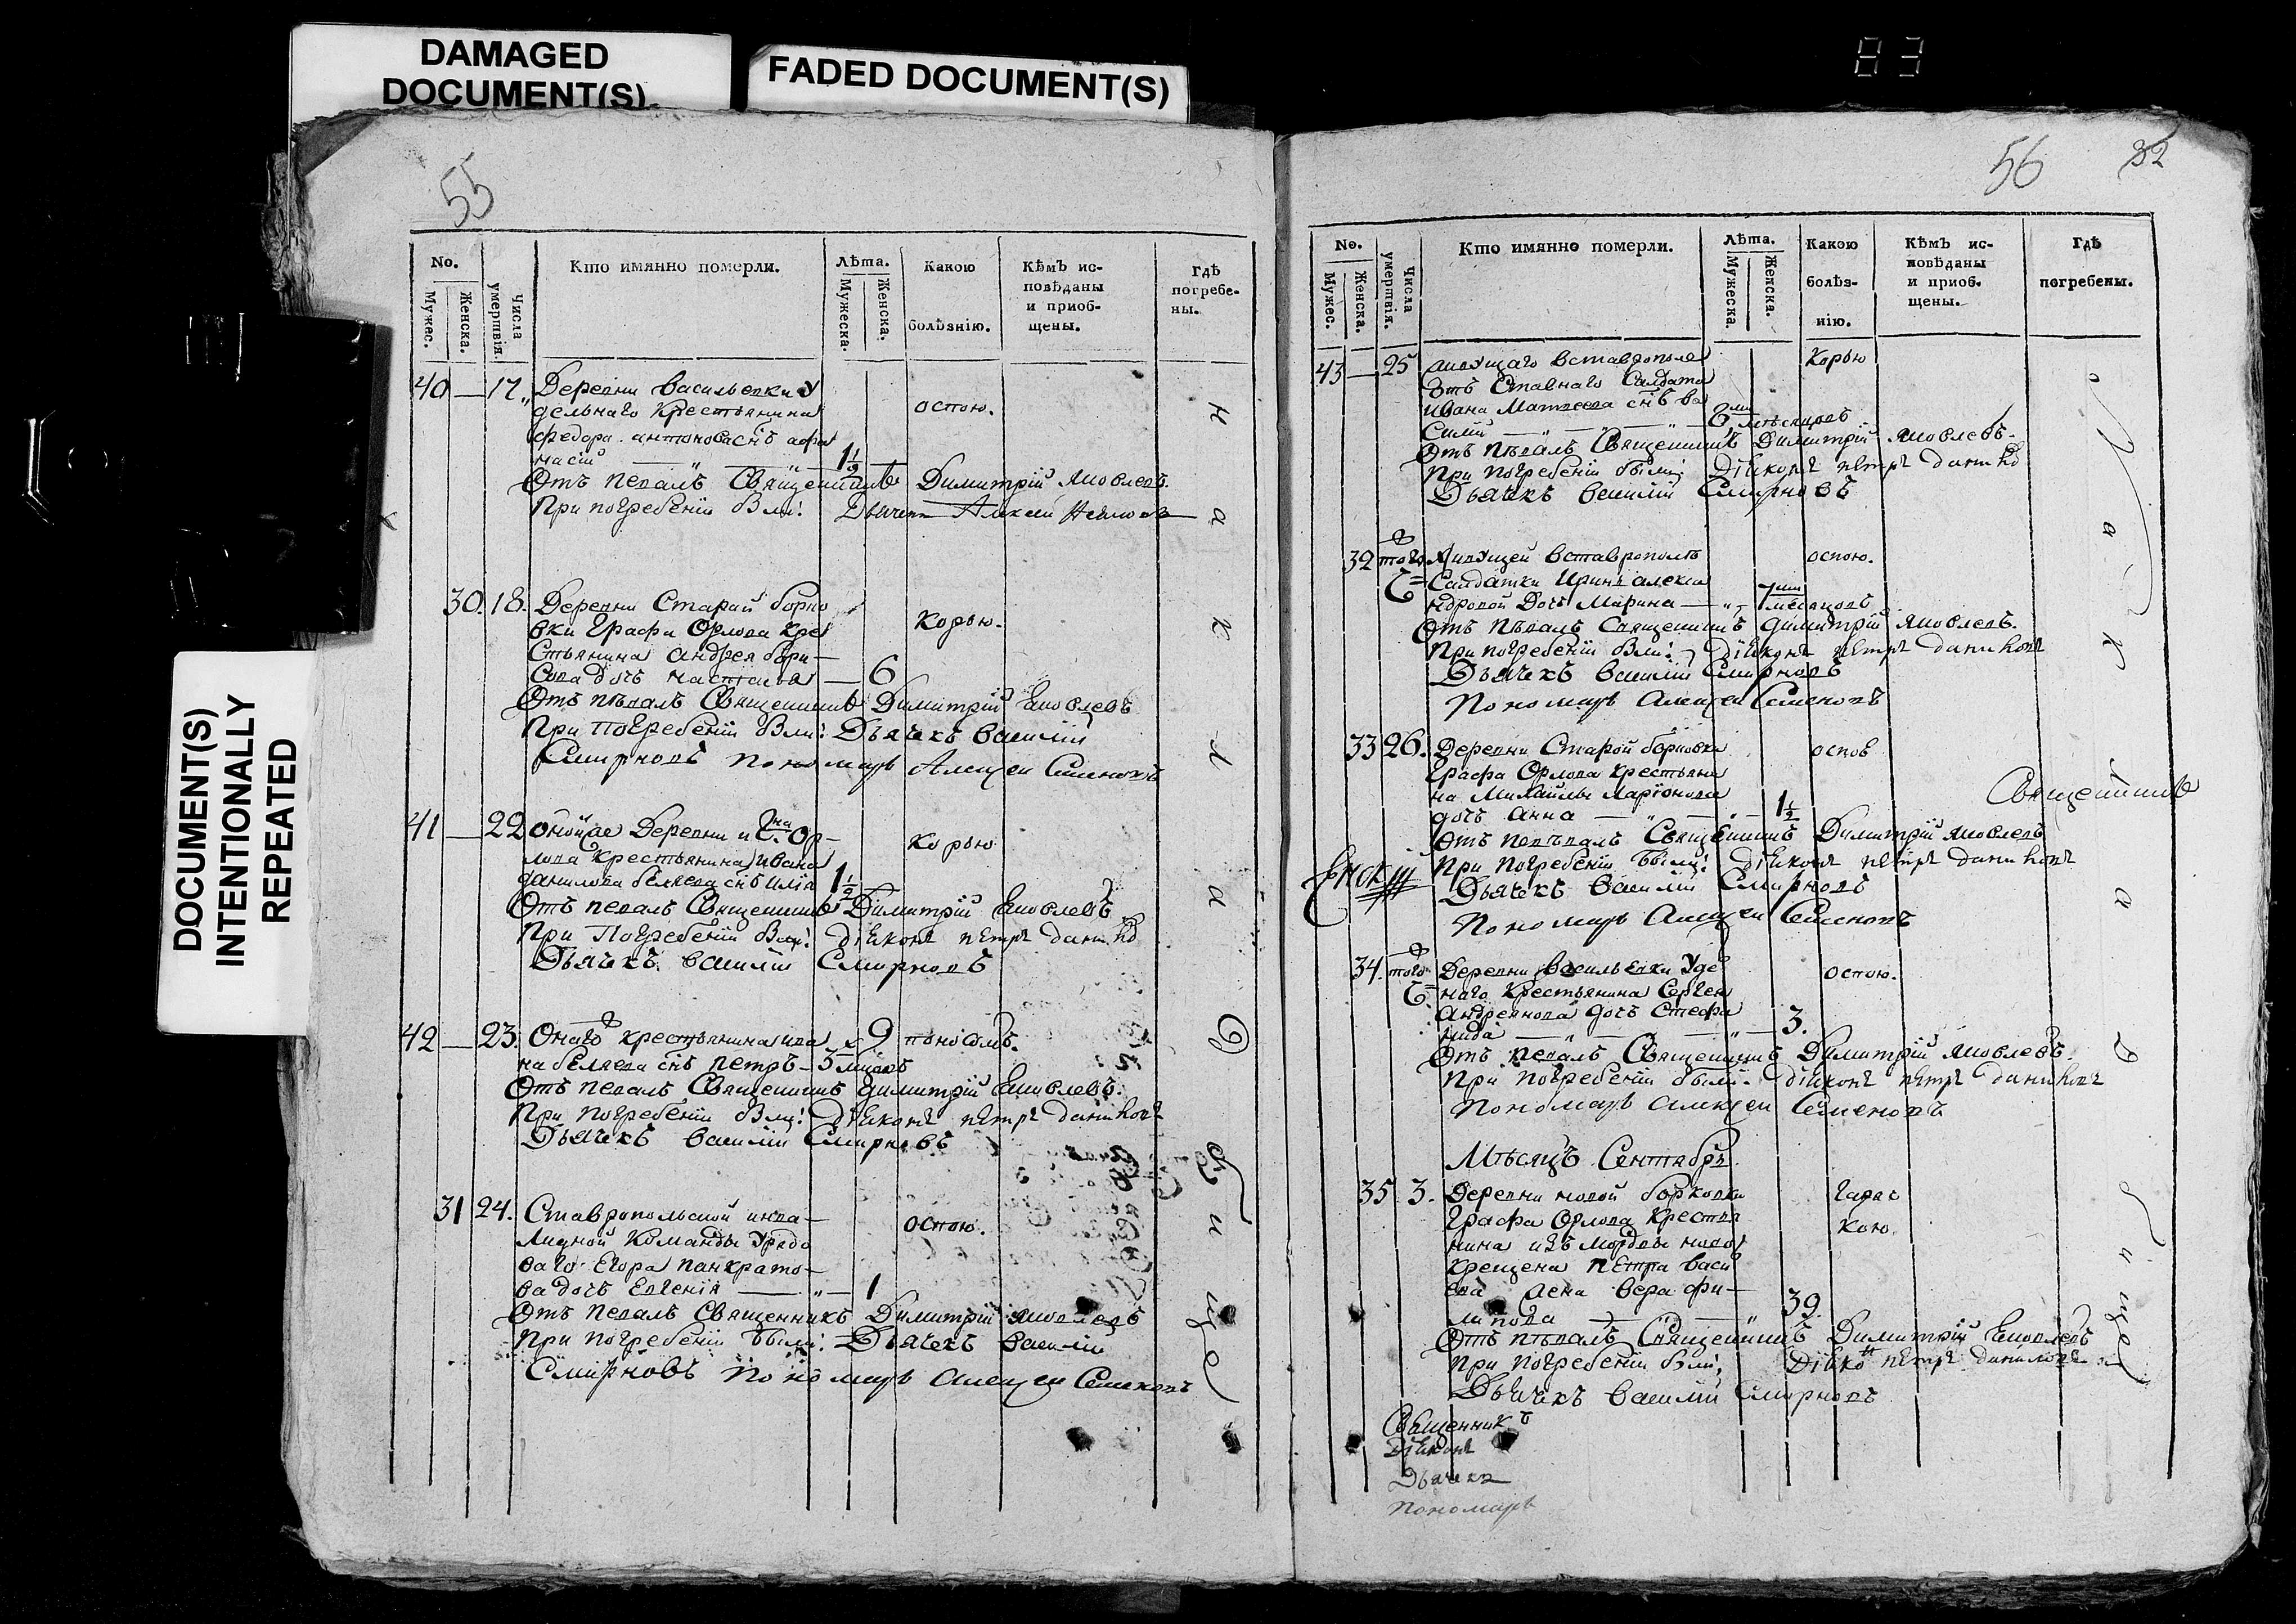 DAMAGED
DOCUMENT(S)
FADED DOCUMENT(S)
83
DOCUMENT(S)
INTENTIONALLY
REPEATED
55
No.
Мужес.
Женска.
Числа умертвія.
Кто имянно померли.
Лѣта.
Мужеска.
Женска.
Какою
болѣзнію.
Кѣмъ ис-
повѣданы
и приоб-
щены.
гдѣ
погребе-
ны.
40 — 17. Деревни васильевки У
дельнаго Крестьянина оспою.
федора антонова снъ афа
насій 1 1/2
Отъ певалъ Священникъ Димитрій Яковлевъ.
При погребеніи были: Дьячекъ
30. 18. Деревни Старой борко
вки Графа Орлова Кре Корью.
стьянина андрея бори-
сова дочь настасья — 6
Отъ пѣвалъ Священникъ Димитрій Яковлевъ
При Погребеніи были: Дьячекъ василій
Смирновъ пономарь Алексеи Семеновъ
41 — 22 оной же Деревни и Ор-
лова Крестьянина Ивана Корью
данилова беляева снъ илія 1 1/2
Отъ певалъ Священникъ Димитрій Яковлевъ
При Погребеніи были: діаконъ петръ
Дьячекъ василій Смирновъ
42 — 23. Онаго крестьянина ива поносомъ.
на беляева снъ петръ
Отъ певалъ Священникъ димитрій Яковлевъ.
При погребеніи были: діаконъ петръ даниловъ
Дьячекъ василій Смирновъ
31 24. Ставропольской инва-
лидной Команды Урядо оспою.
ваго Егора панкрато-
ва дочь Евгенія — 1
Отъ певалъ Священникъ Димитрій Яковлевъ
При погребеніи были: Дьячекъ василій
Смирновъ пономарь алексеи Семеновъ
56 32
No.
Мужес.
Женска.
Числа умертвія.
Кто имянно померли.
Лѣта.
Мужеска.
Женска.
Какою
болѣз-
нію.
Кѣмъ ис-
повѣданы
и приоб-
щены.
Гдѣ
погребены.
43 — 25 живущаго вставрополе Корью
Отъ Ставнаго Салдата
ивана Матвеева снъ ва
силій месяцовъ
Отъ пѣвалъ Священникъ Димитрій Яковлевъ.
При погребеніи были: діаконъ петръ
Дьячекъ василій Смирновъ
32 того Живущей вставрополѣ оспою.
Салдатки Ирины алекса
ндровой Дочь Марина 7 месяцовъ
Отъ пѣвалъ Священникъ димитрій Яковлевъ.
При погребеніи были: діаконъ петръ даниловъ
Дьячекъ василій Смирновъ
Пономарь Алексеи Семеновъ
33 26. Деревни Старой борковки
Графа Орлова Крестьяни
на Михайлы Ларіонова
дочь анна 1 1/2
Отъ певалъ Священникъ Димитрій Яковлевъ
При погребеніи были: діаконъ петръ даниловъ
Дьячекъ василій Смирновъ
Пономарь Алексеи Семеновъ
Священникъ
34. того Деревни васильевки Уде оспою.
наго Крестьянина Сергея
андреянова дочь Стефа
нида 3.
Отъ певалъ Священникъ Димитрій Яковлевъ.
При погребеніи были. діаконъ петръ даниловъ
Пономарь алексеи Семеновъ
Мѣсяцъ Сентябрь
35 3. Деревни новой борковки Гаряч
Графа Орлова Крестья кою.
нина изъ мордвы ново
крещена петра васи
ева жена вера фи-
липова 39.
Отъ пѣвалъ Священникъ Димитрій Яковлевъ
При погребеніи были: діаконъ петръ даниловъ
Дьячекъ василій Смирновъ
Священникъ
Діаконъ
Дьячекъ
Пономарь